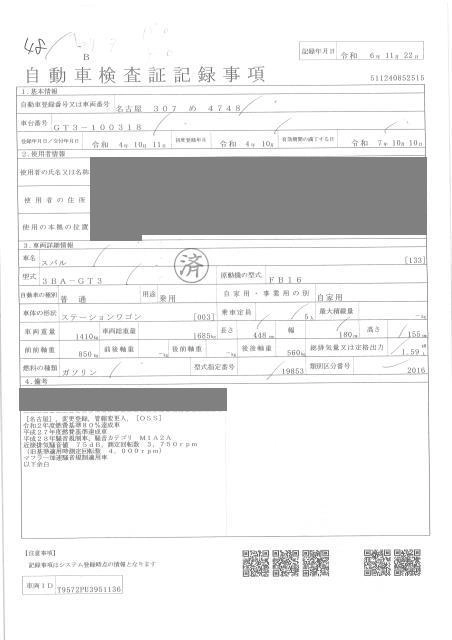 48
B
記録年月日 令和 6年 11月 22日
自動車検査証記録事項
511240852515
1.基本情報
自動車登録番号又は車両番号 名古屋 307 め 4748
車台番号 GT3-100318
登録年月日/交付年月日 令和 4年 10月 11日 初度登録年月 令和 4年 10月 有効期間の満了する日 令和 7年 10月 10日
2.使用者情報
使用者の氏名又は名称
使用者の住所
使用の本拠の位置
3.車両詳細情報
車名 スバル [133]
済
型式 3BA-GT3 原動機の型式 FB16
自動車の種別 普通 用途 乗用 自家用・事業用の別 自家用
車体の形状 ステーションワゴン [003] 乗車定員 5人 最大積載量 -kg
車両重量 1410kg 車両総重量 1685kg 長さ 448cm 幅 180cm 高さ 155cm
前前軸重 850kg 前後軸重 -kg 後前軸重 -kg 後後軸重 560kg 総排気量又は定格出力 1.59
燃料の種類 ガソリン 型式指定番号 19853 類別区分番号 2016
4.備考
[名古屋],変更登録,管轄変更入,[OSS]
令和2年度燃費基準80%達成車
平成27年度燃費基準達成車
平成28年騒音規制車,騒音カテゴリ M1A2A
近接排気騒音値 75dB,測定回転数 3,750rpm
(旧基準適用時測定回転数 4,000rpm)
マフラー加速騒音規制適用車
以下余白
【注意事項】
記録事項はシステム登録時点の情報となります
車両ID T9572PU3951136